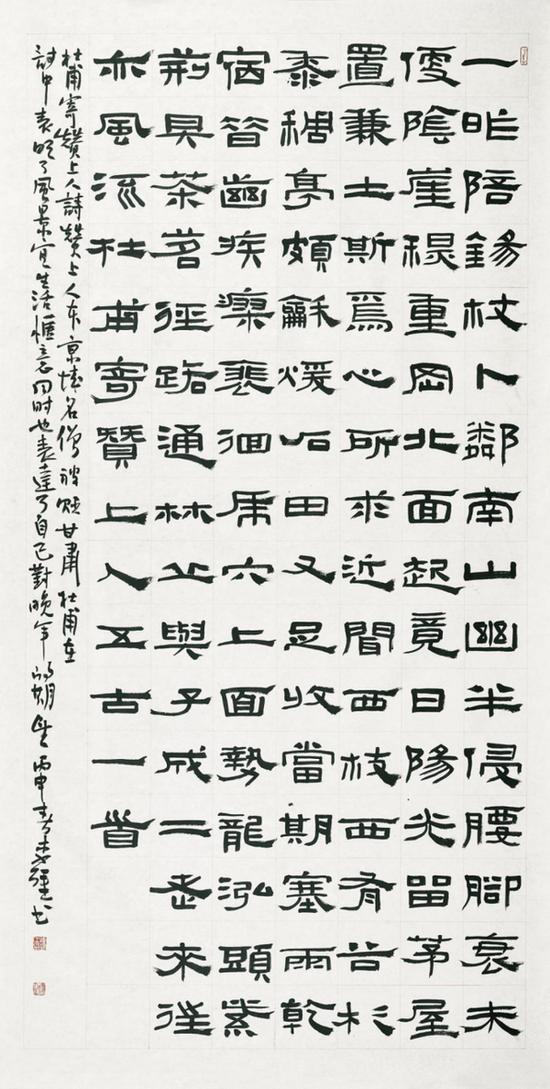 一昨陪錫杖卜鄰南山幽年侵腰腳衰未
便陰崖秋重岡北面起竟日陽光留茅屋
置兼土斯焉心所求近間西枝西有谷杉
黍稠亭頗龢煖石田又足收當期塞雨乾
宿昔齒疾瘳裴徊虎穴上面勢龍泓頭紫
荊具茶茗徑路通林丘與子成二老來往
亦風流杜甫寄贊上人五古一首
杜甫寄贊上人詩贊上人东京名僧被贬甘肅杜甫在
詩中表明了風景宜生活惬意同时也表達了自己對晚年的期望丙申春書